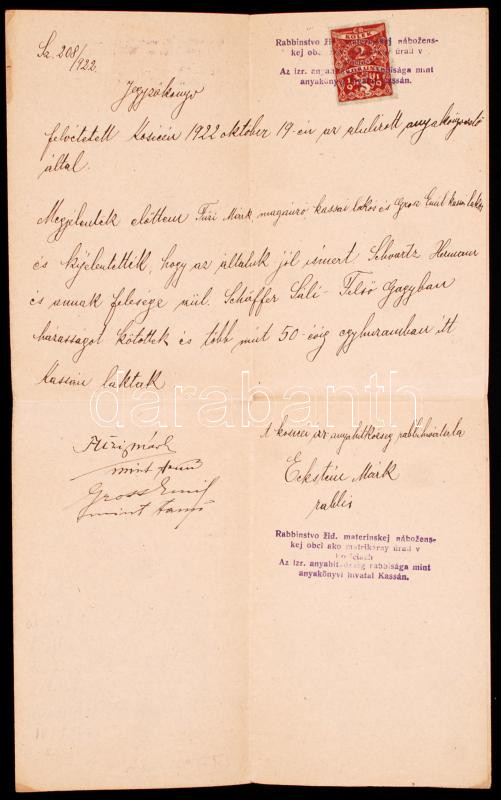 Sz. 208/1922.
Rabbinstvo žid. materinskej nábožens-
kej obci úrad v
Az izr. anyahitközség rabbisága mint
anyakönyvi hivatal Kassán.
KOLEK
2
Jegyzőkönyv
felvétetett Kosicén 1922 oktober 19-én az alulirott anyakönyvvezető
által.
Megjelentek előttem Füzi Márk magánzó kassai lakós és Grosz Emil kassai lakós
és kijelentették, hogy az általuk jól ismert Schvartz Hermann
és annak felesége szül. Schäffer Sáli - Felső Gagyban
házasságot kötöttek és több mint 50-évig egyhuzamban itt
Kassán laktak
darabanth
Füzi Márk
mint tanu
Gross Emil
mint tanú
A kosicei izr anyahitközség rabbihivatala
Eckstein Márk
rabbi
Rabbinstvo žid. materinskej nábožens-
kej obci ako matrikárny úrad v
Košiciach
Az izr. anyahitközség rabbisága mint
anyakönyvi hivatal Kassán.